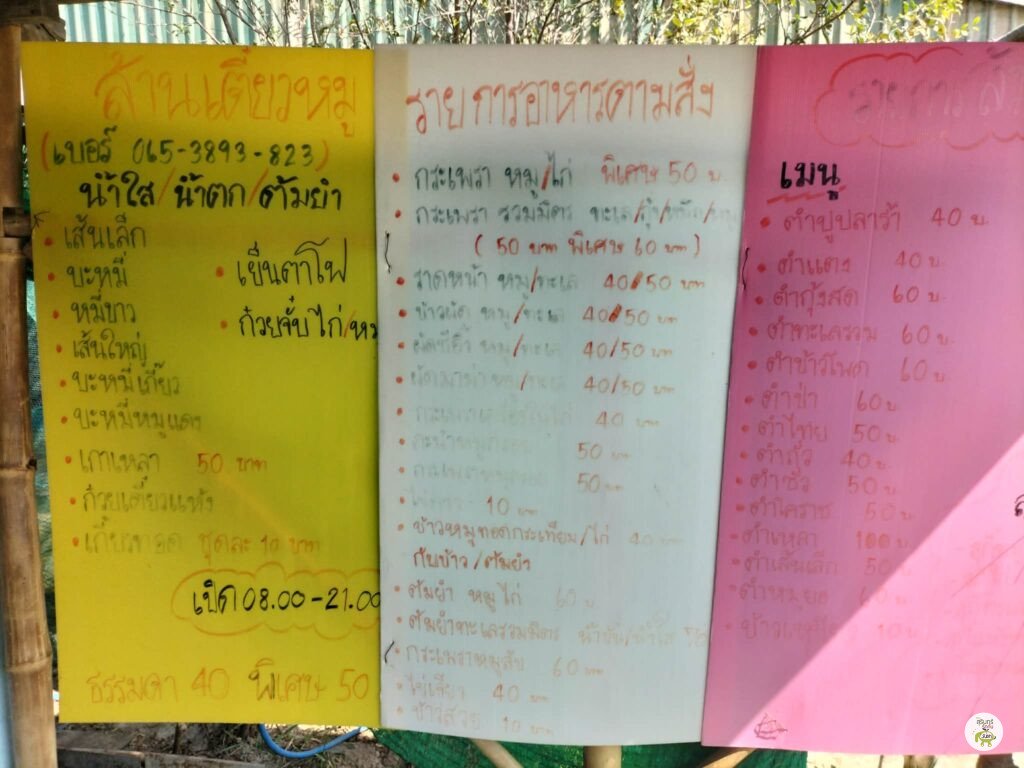 ล้านเตี๋ยวหมู
(เบอร์ 065-3893-823)
น้ำใส/น้ำตก/ต้มยำ
• เส้นเล็ก
• บะหมี่
• หมี่ขาว
• เส้นใหญ่
• บะหมี่เกี๊ยว
• บะหมี่หมูแดง
• เกาเหลา 50 บาท
• ก๋วยเตี๋ยวแห้ง
• เกี๊ยวทอด ชุดละ 10 บาท
• เย็นตาโฟ
• ก๋วยจั๊บไก่/หมู
เปิด 08.00-21.00
ธรรมดา 40 พิเศษ 50
รายการอาหารตามสั่ง
• กระเพรา หมู/ไก่ พิเศษ 50 บ.
• กระเพรา รวมมิตร ทะเล/กุ้ง/หมึก/หมู
(50 บาท พิเศษ 60 บาท)
• ราดหน้า หมู/ทะเล 40/50 บาท
• ข้าวผัด หมู/ทะเล 40/50 บาท
• ผัดซีอิ๊ว หมู/ทะเล 40/50 บาท
• ผัดมาม่า หมู/ทะเล 40/50 บาท
• 40 บาท
• คะน้าหมูกรอบ 50 บาท
• กระเพราหมูกรอบ 50 บาท
• ไข่ดาว 10 บาท
• ข้าวหมูทอดกระเทียม/ไก่ 40 บาท
กับข้าว/ต้มยำ
• ต้มยำ หมู ไก่ 60 บ.
• ต้มยำทะเลรวมมิตร น้ำข้น/น้ำใส
• กระเพราหมูสับ 60 บ.
• ไข่เจียว 40 บาท
• ข้าวสวย 10 บาท
รายการ
เมนู
• ตำปูปลาร้า 40 บ.
• ตำแตง 40 บ.
• ตำกุ้งสด 60 บ.
• ตำทะเลรวม 60 บ.
• ตำข้าวโพด 60 บ.
• ตำป่า 60 บ.
• ตำไทย 50 บ.
• ตำถั่ว 40 บ.
• ตำซั่ว 50 บ.
• ตำโคราช 50 บ.
• ตำเหลา 100 บ.
• ตำเส้นเล็ก 50
• ตำหมูยอ 60 บ.
• ข้าวเหนียว 10 บ.